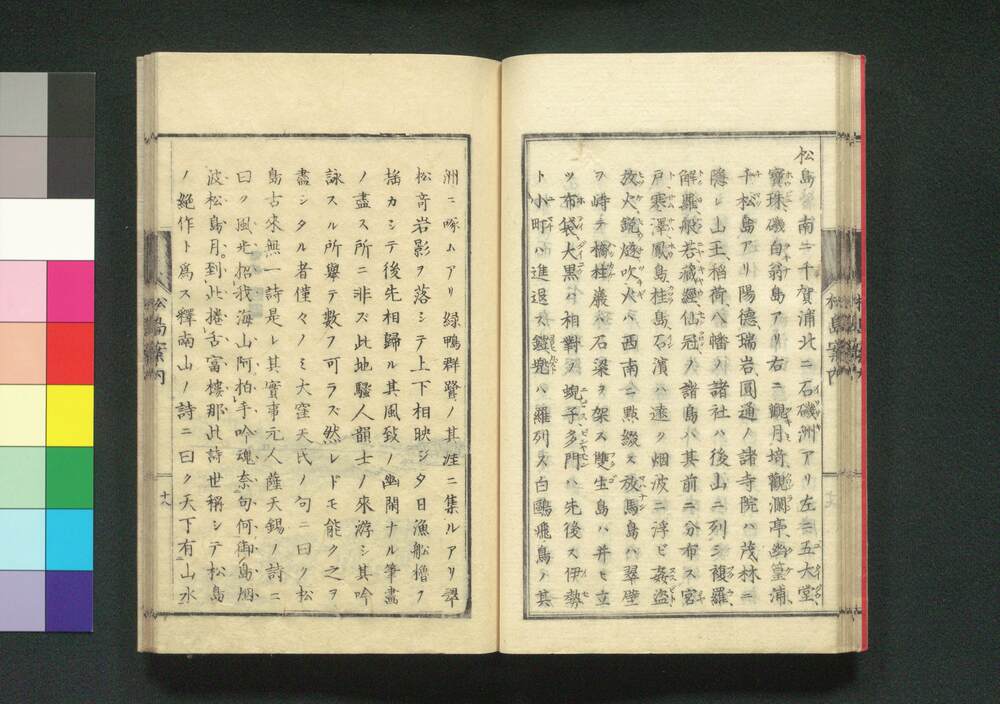 松島
南ニ千賀浦北ニ石磯洲アリ左ニ五大堂
寶珠磯白翁島アリ右ニ觀月埼觀瀾亭幽篁浦
千松島アリ陽德瑞岩圓通ノ諸寺院ハ茂林ニ
隱レ山王稻荷八幡ノ諸社ハ後山ニ列シ複羅
解難般若藏經仙冠ノ諸島ハ其前ニ分布ス宮
戸寒澤鳳島桂島石濱ハ遠ク烟波ニ浮ビ姦盜
放火鏡燧吹火ハ西南ニ點綴ス放馬島ハ翠壁
ヲ峙チ橋柱巖ハ石梁ヲ架ス雙生島ハ并ビ立
ツ布袋大黒ハ相對シ蛭子多門ハ先後ス伊勢
ト小町ハ進退ス鎧兜ハ羅列ス白鷗飛鳥ノ其
松島案内
洲ニ啄ムアリ緑鴨群鷺ノ其涯ニ集ルアリ翠
松奇岩影ヲ落シテ上下相映シ夕日漁船櫓ヲ
搖カシテ後先相歸ル其風致ノ幽閑ナル筆畵
ノ盡ス所ニ非ズ此地騷人韻士ノ來游シ其吟
詠スル所擧テ數フ可ラズ然レドモ能ク之ヲ
盡シタル者僅々ノミ大窪天氏ノ句ニ曰ク松
島古來無一詩是レ其實事元人薩天錫ノ詩ニ
曰ク風光招我海山阿拍手吟魂奈句何御島烟
波松島月到此捲舌富樓那此詩世稱シテ松島
ノ絶作ト爲ス釋南山ノ詩ニ曰ク天下有山水
松島案内
十八